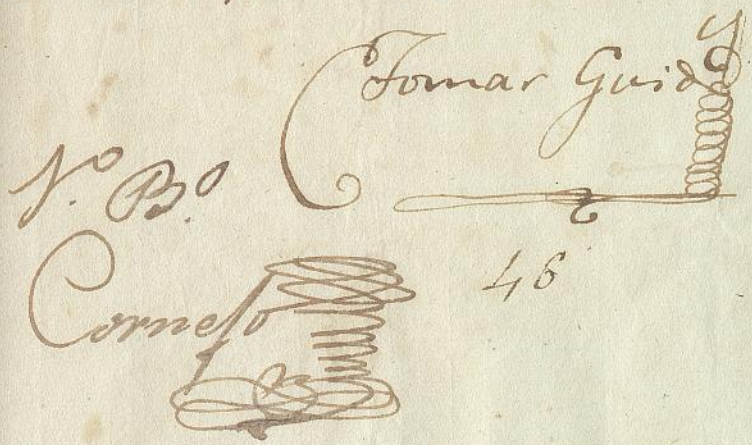 Tomas Guido
V.º B.º
46
Cornejo